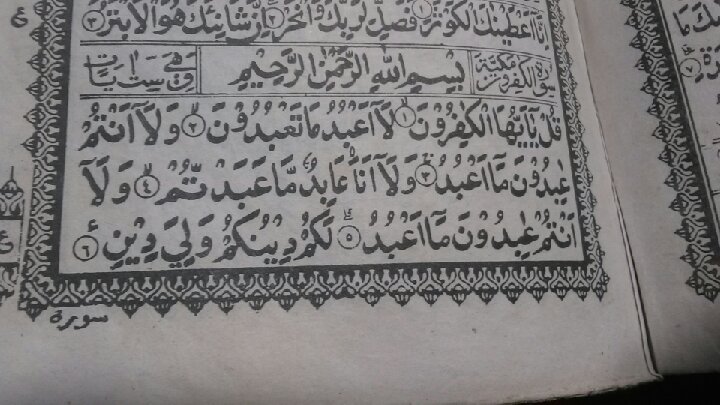 اِنَّآ اَعْطَيْنٰكَ الْكَوْثَرَ ۝١ فَصَلِّ لِرَبِّكَ وَانْحَرْ ۝٢ اِنَّ شَانِئَكَ هُوَ الْاَبْتَرُ ۝٣
سورة الكفرون مكية بِسْمِ اللهِ الرَّحْمٰنِ الرَّحِيْمِ وهي ست ايات
قُلْ يٰٓاَيُّهَا الْكٰفِرُوْنَ ۝١ لَآ اَعْبُدُ مَا تَعْبُدُوْنَ ۝٢ وَلَآ اَنْتُمْ
عٰبِدُوْنَ مَآ اَعْبُدُ ۝٣ وَلَآ اَنَا عَابِدٌ مَّا عَبَدْتُّمْ ۝٤ وَلَآ
اَنْتُمْ عٰبِدُوْنَ مَآ اَعْبُدُ ۝٥ لَكُمْ دِيْنُكُمْ وَلِيَ دِيْنِ ۝٦
سورة